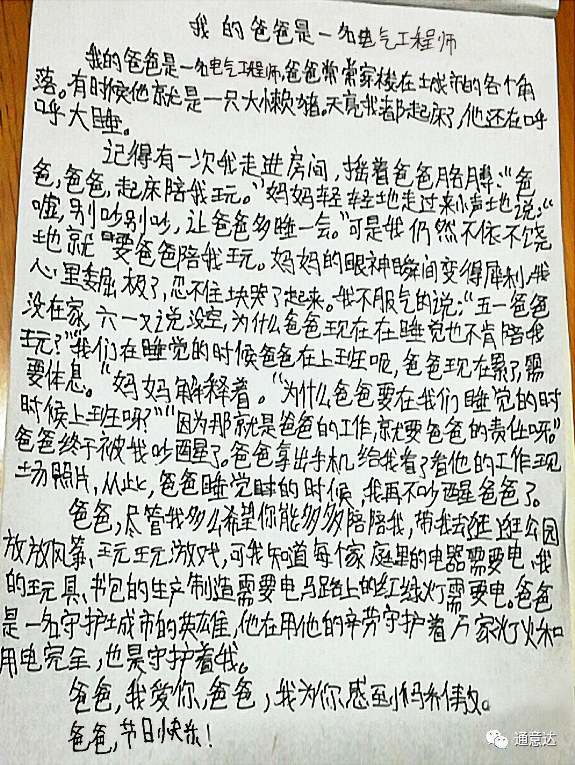 我的爸爸是一名电气工程师
我的爸爸是一名电气工程师,爸爸常常穿梭在土成市的各个角
落。有时候他就是一只大懒猪。天亮我都起床了,他还在呼
呼大睡。
记得有一次我走进房间,摇着爸爸胳膊:“爸
爸,爸爸,起床陪我玩。”妈妈轻轻地走过来小声地说:“
嘘,别吵别吵,让爸爸多睡一会。”可是我仍然不依不饶
地就要爸爸陪我玩。妈妈的眼神瞬间变得犀利,我
心里委屈极了,忍不住块哭了起来。我不服气的说:“五一爸爸
没在家,六一又说没空,为什么爸爸现在在睡觉也不肯陪我
玩?”“我们在睡觉的时候爸爸在上班呃,爸爸现在累了,需
要休息。”妈妈解释着。“为什么爸爸要在我们睡觉的时
时候上班呀?”“因为那就是爸爸的工作,就要爸爸的责任呀。”
爸爸终于被我吵醒了。爸爸拿出手机给我看了看他的工作现
场照片,从此,爸爸睡觉的时候,我再不吵醒爸爸了。
爸爸,尽管我多么希望你能多多陪陪我,带我去逛逛公园
放放风筝、玩玩游戏,可我知道每个家庭里的电器需要电、我
的玩具、书包的生产制造需要电马路上的红绿灯需要电。爸爸
是一名守护土成市的英雄,他在用他的辛劳守护着万家灯火和
用电完全,也是守护着我。
爸爸,我爱你,爸爸,我为你感到骄傲。
爸爸,节日快乐!
通意达